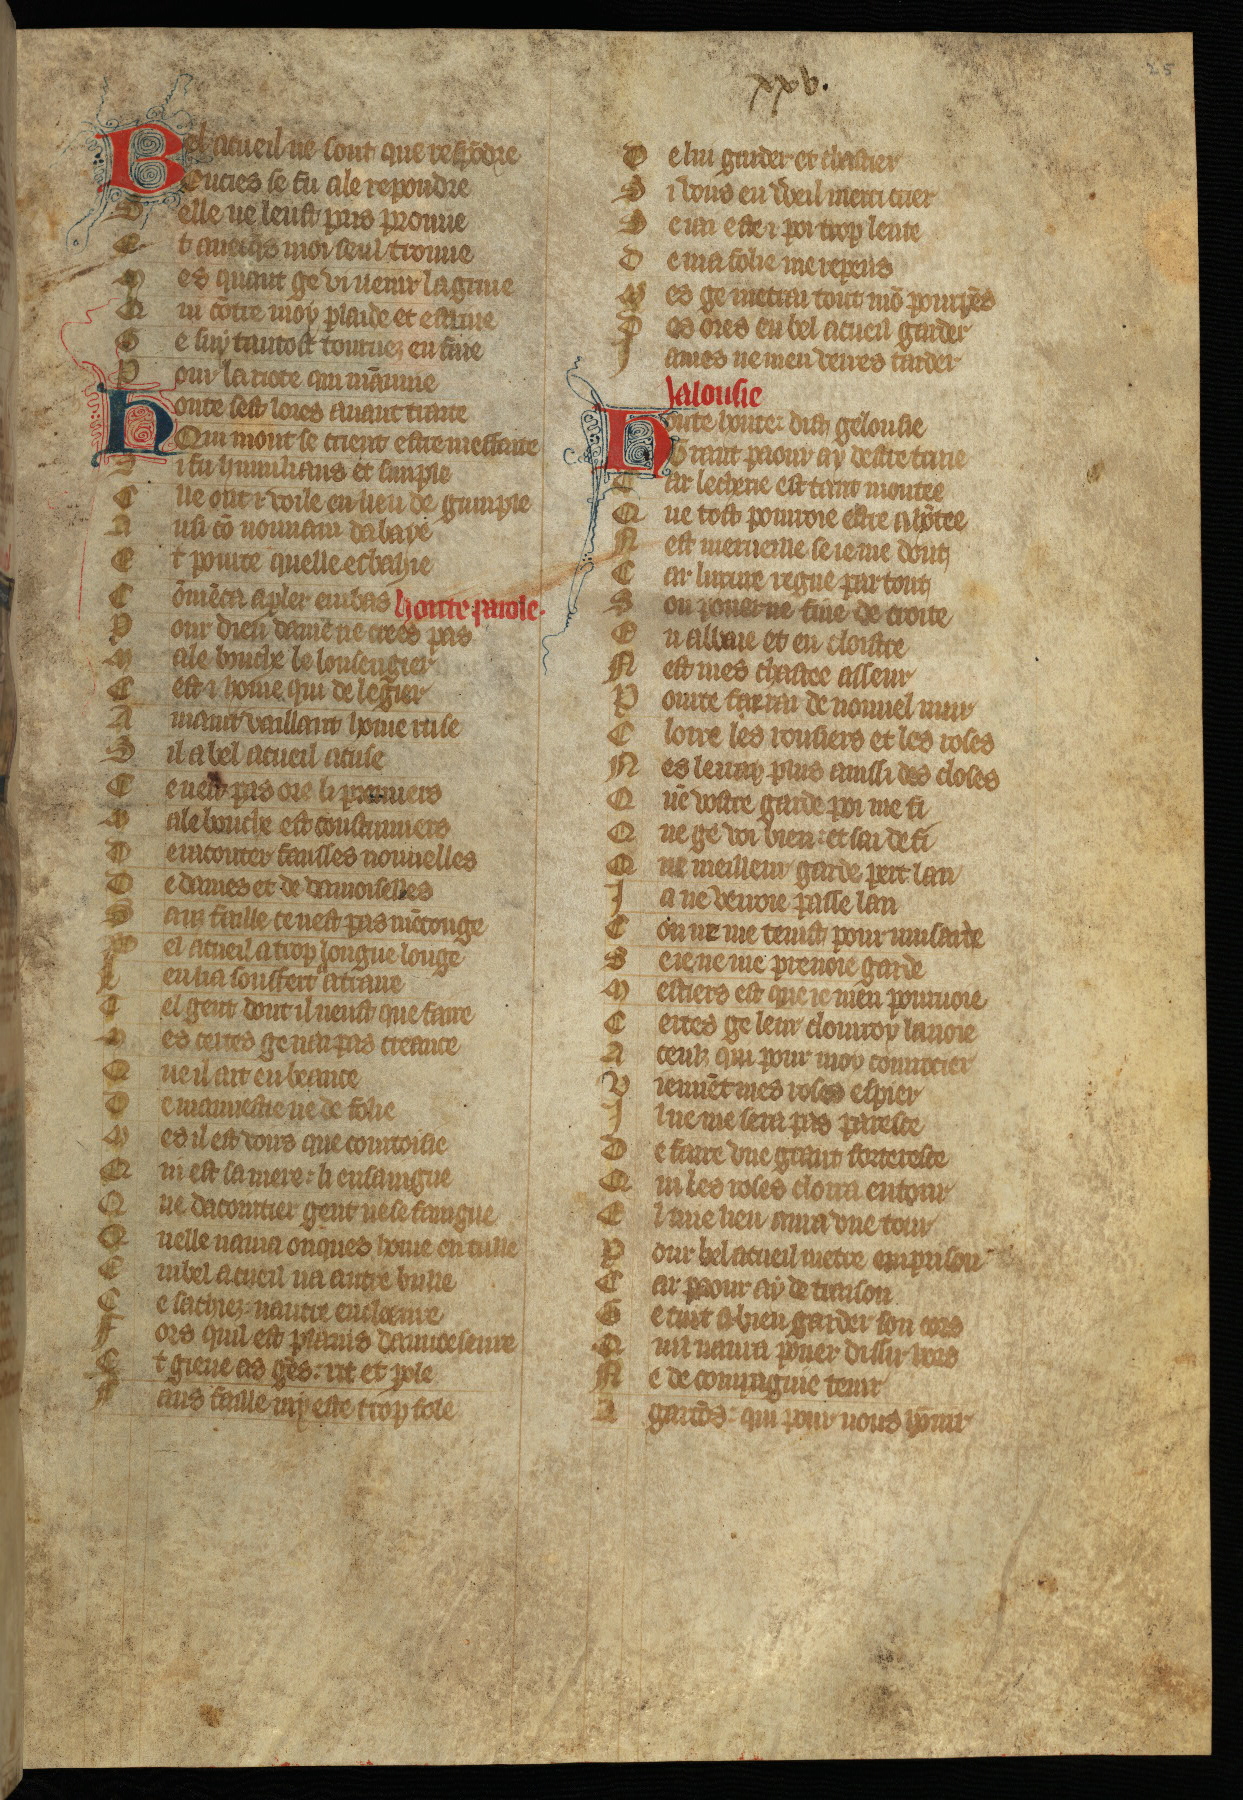 xxv.
25
Bel acueil ne sout que respõdre
Eucies se fu ale repondre
S elle ne leust pris prouue
E t auecq̃s moi seul trouue
M es quant ge vi uenir la griue
Q ui cõtre moy plaide et estriue
G e suy tantost tournez en fuie
P our la riote qui mãnuie
Honte sest lores auant traite
Qui mont se crient estre meffaite
S i fu humilians et simple
E ue ont i voile en lieu de guimple
A usi cõ nonnain dabaye
E t pource quelle esbahie
C õmẽca a pler embas Honte parole.
P our dieu dame ne crees pas
M ale bouche le losengier
C est i home qui de legier
A maint vaillant home ruse
S il a bel acueil acuse
C e nest pas ore li premiers
M ale bouche est coustumiers
D e raconter fausses nouuelles
D e dames et de damoiselles
S anz faille ce nest pas mẽconge
B el acueil a trop longue longe
L en lia souffert atraire
T el gent dont il neust que faire
M es certes ge nai pas creance
Q ue il ait eu beance
D e mauuestie ne de folie
M es il est voirs que courtoisie
Q ui est sa mere: li ensaingne
Q ue dacointier gent ne se faingne
Q uelle nama onques home entulle
E n bel acueil na autre hulle
C e sachiez: nautre encloeure
F ors quil est plains denuoiseure
E t gieue as gẽs: rit et pole
S ans faille iay este trop fole
D e lui garder et chastier
S i vous en vveil merci crier
S e iai este i poi trop lente
D e ma folie me repens
M es ge metrai tout mõ pourpẽs
D es ores en bel acueil garder
J ames ne men verres tarder
Jalousie
Honte honte: dist gelousie
Grant paour ay destre traie
C ar lecherie est tant montee
Q ue tost pourroie estre ahõtee
N est merueille se ie me dout
C ar luxure regne par tout
S on pouer ne fine de croite
E n abbaie et en cloistre
N est mes chastee asseur
P ource ferai de nouuel mur
C lorre les rousiers et les roses
N es lerray plus aussi descloses
Q uẽ vostre garde poi me fi
Q ue ge voi bien: et sai de fi
Q ue meilleur garde pert lan
J a ne verroie passe lan
C on ne me tenist pour musarde
S e ie ne me prenoie garde
M estiers est que ie men pouruoie
C ertes ge leur clourroy la uoie
A ceulz qui pour moy conuoier
V iennẽt mes roses espier
J l ne me sera pas paresce
D e faire vne grant forteresce
Q ui les roses clorra entour
E l mie lieu aura vne tour
P our bel acueil metre en prison
C ar paour ay de traison
G e cuit a bien garder son cors
Q uil naura pouer dissir hors
N e de compaignie tenir
A garcõs: qui pour nous hõnir